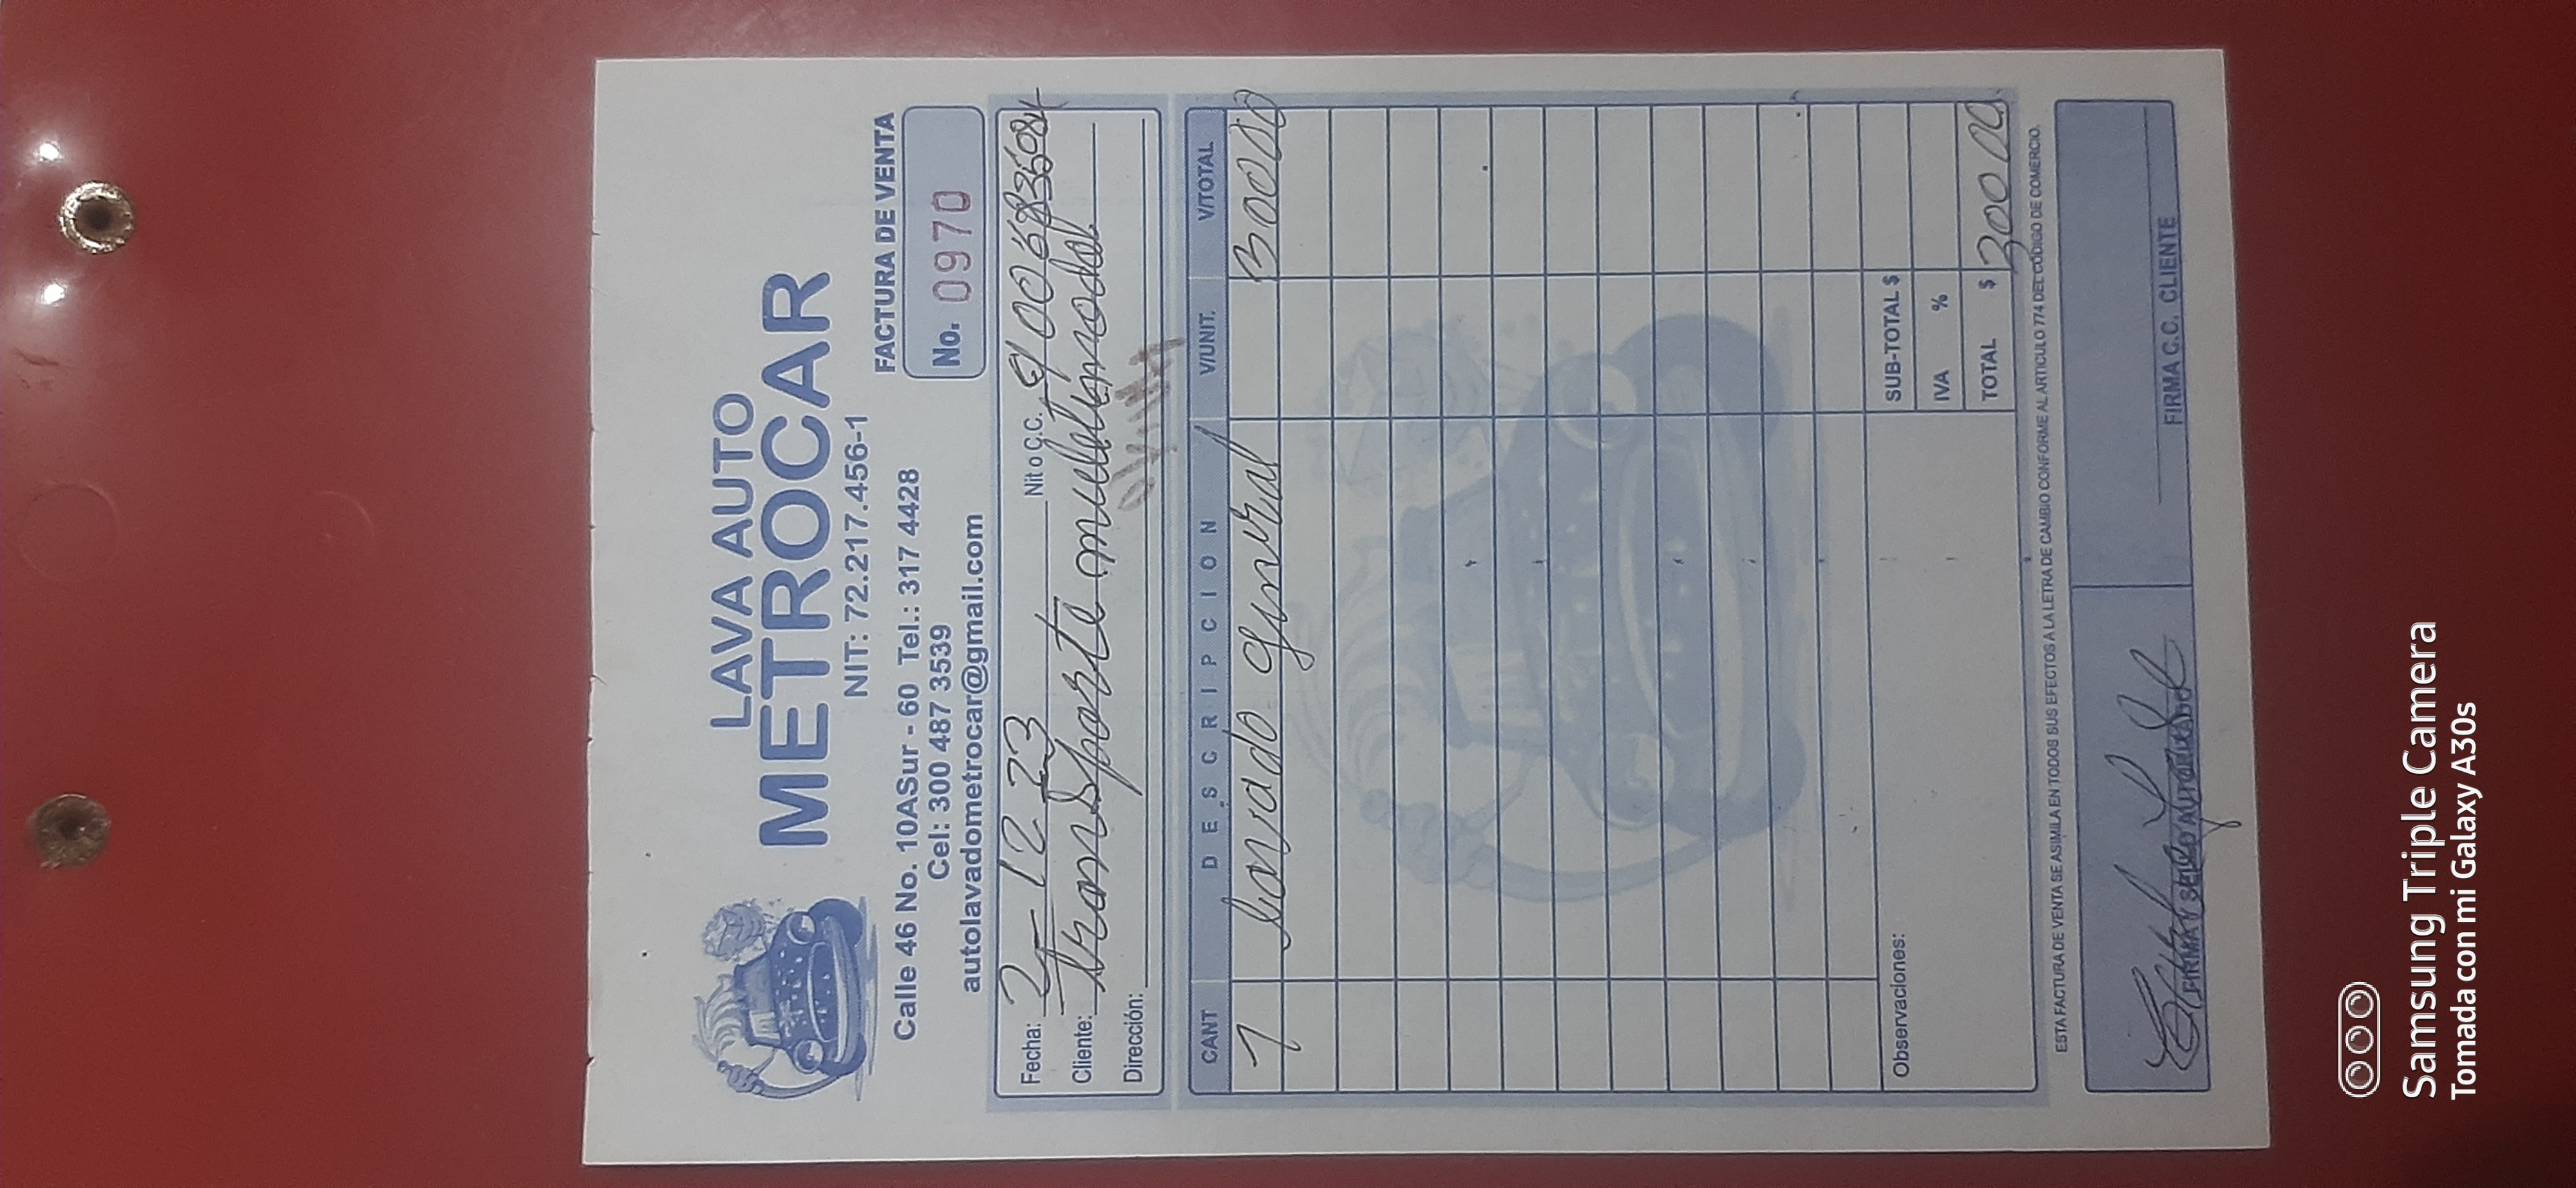 LAVA AUTO
METROCAR
NIT: 72.217.456-1
Calle 46 No. 10ASur - 60 Tel.: 317 4428
Cel: 300 487 3539
autolavadometrocar@gmail.com
FACTURA DE VENTA
No. 0970
Fecha: 12 23 Nit o C.C.
Cliente: transporte multimodal
Dirección:
CANT DESCRIPCION V/UNIT. V/TOTAL
1 Lavado general 30000
Observaciones:
SUB-TOTAL $
IVA %
TOTAL $ 30000
ESTA FACTURA DE VENTA SE ASIMILA EN TODOS SUS EFECTOS A LA LETRA DE CAMBIO CONFORME AL ARTICULO 774 DEL CÓDIGO DE COMERCIO.
FIRMA Y SELLO AUTORIZADO
FIRMA C.C. CLIENTE
Samsung Triple Camera
Tomada con mi Galaxy A30s